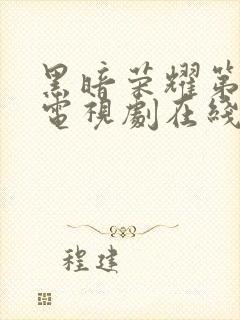 黑暗荣耀第
電視劇在綫
程建